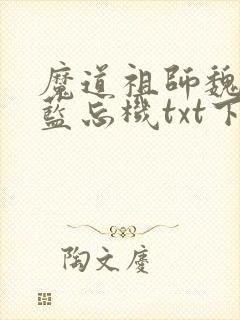 魔道祖師魏
藍忘機txt下
陶文慶